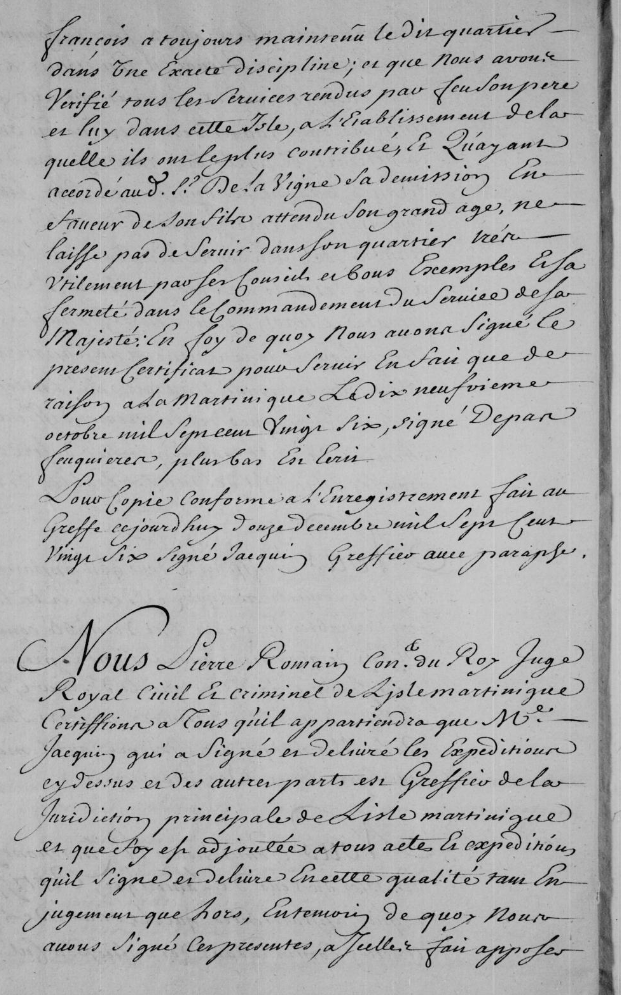 françois a toujours maintenu le dit quartier
dans Une Exacte discipline; et que Nous avons
Verifié tous les Services rendus par feu Son pere
et luy dans cette Isle, a L'Etablissement de la
quelle ils ont le plus contribué, Et Qu'ayant
accordé aud. Sr. De La Vigne Sa demission En
faveur de Son fils attendu Son grand age, ne
laisse pas de Servir dans son quartier trés
Utilement par ses Conseils et bons Exemples Et sa
fermeté dans le Commandement du Service de sa
Majesté; En foy de quoy Nous avons Signé le
present Certificat pour Servir En fait que de
raison a La Martinique Le dix neufvieme
octobre mil Sept cent Vingt Six, signé Depas
feuquieres, plus bas Est Ecrit
Pour Copie Conforme a l'Enregistrement fait au
Greffe cejourdhuy douze decembre mil Sept Cent
Vingt Six Signé Jacquin Greffier avec paraphe.
Nous Pierre Romain Con.er du Roy Juge
Royal Civil Et criminel de L'isle martinique
Certiffions a Tous qu'il appartiendra que M.e
Jacquin qui a Signé et delivré les Expeditions
cy dessus et des autres parts est Greffier de la
Juridiction principale de L'isle martinique
et que foy est adjoutée a tous actes Et expeditions
qu'il Signe et delivre En cette qualité tant En
jugement que hors, En temoin de quoy Nous
avons Signé Ces presentes, a Icelles fait apposer